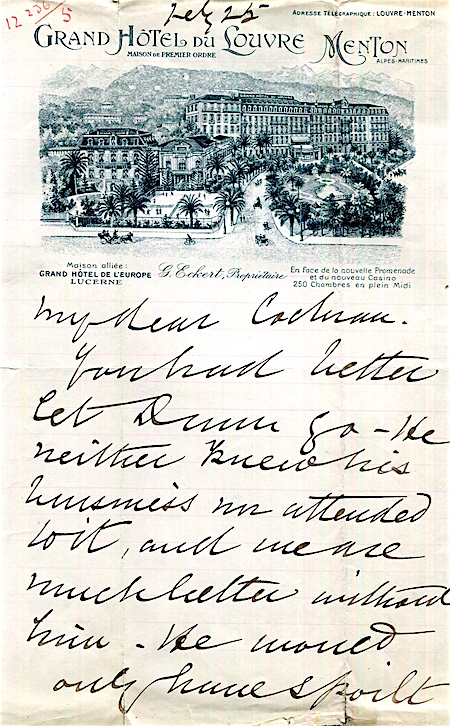 12236/5
Feby 25
ADRESSE TÉLÉGRAPHIQUE: LOUVRE-MENTON
GRAND HÔTEL DU LOUVRE MENTON
MAISON DE PREMIER ORDRE
ALPES-MARITIMES
Maison alliée:
GRAND HÔTEL DE L'EUROPE
LUCERNE
G. Eckert, Propriétaire
En face de la nouvelle Promenade
et du nouveau Casino
250 Chambres en plein Midi
My dear Cochran.
You had better
let Dunn go - He
neither knew his
business nor attended
to it, and we are
much better without
him - He would
only have spoilt